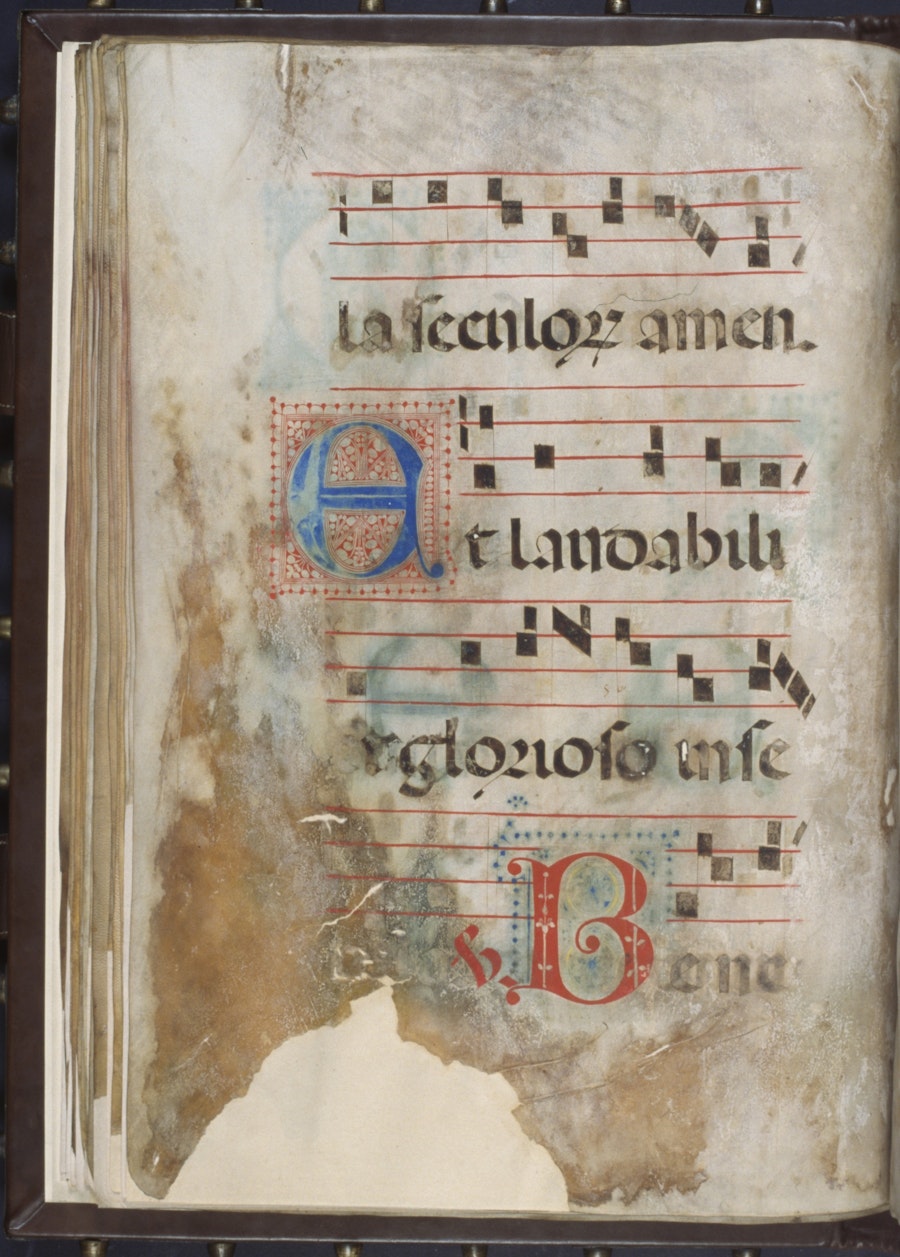 la seculoꝝ amen.
Et laudabili
et glorioso in se
℣. Bene